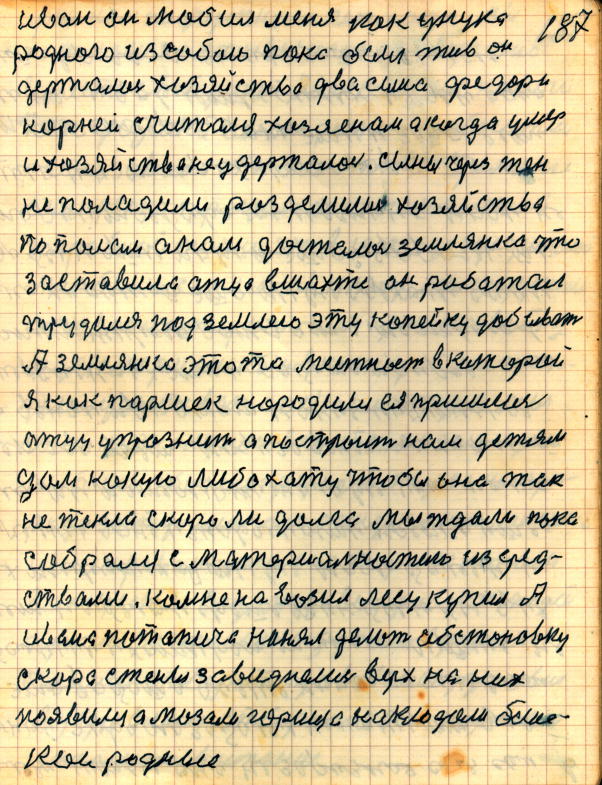 иван он любил меня как унука 187
родного из собою пока был жив он
держалось хозяйства два сына федор и
корней считался хозяенам а когда умер
и хозяйства неудержалось. сыны через жен
не поладили розделили хозяйства
по полам а нам досталось землянка что
заставила отца в шахте он работал
трудился под землею эту копейку добывать
А землянка это та местност в каторой
я как паршек народился пришлся
отцу упразнит а построит нам детям
дом какую либо хату чтобы она так
не текла скоро ли долга мы ждали пока
собрались с материальностью из сред-
ствами. камне навозил лесу купил А
ивана потапича нанял делат обстоновку
скора стены завиднелись верх на них
появился мазали горища накладали близ-
кои родные